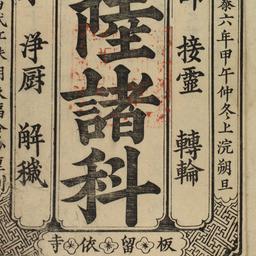 泰六年甲午仲冬上浣朔旦
接靈 轉輪
陸諸科
浄厨 解穢
板留依寺